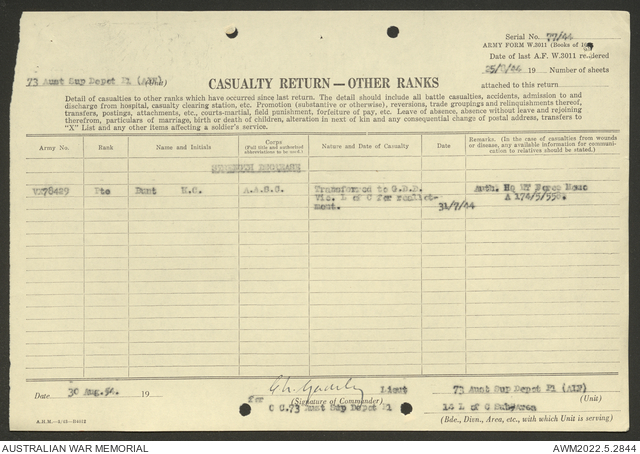 Serial No. 77/44
ARMY FORM W.3011 (Books of 100)
Date of last A.F. W.3011 rendered
73 Aust Sup Depot Pl (AIF) (Unit)
25/8/44 19 Number of sheets
CASUALTY RETURN—OTHER RANKS
attached to this return
Detail of casualties to other ranks which have occurred since last return. The detail should include all battle casualties, accidents, admission to and
discharge from hospital, casualty clearing station, etc. Promotion (substantive or otherwise), reversions, trade groupings and relinquishments thereof,
transfers, postings, attachments, etc., courts-martial, field punishment, forfeiture of pay, etc. Leave of absence, absence without leave and rejoining
therefrom, particulars of marriage, birth or death of children, alteration in next of kin and any consequential change of postal address, transfers to
"X" List and any other items affecting a soldier's service.
Army No. Rank Name and Initials Corps (Full title and authorised abbreviations to be used) Nature and Date of Casualty Date Remarks. (In the case of casualties from wounds or disease, any available information for communication to relatives should be stated.)
VX78429 Pte Dunt W.G. A.A.S.C. Transferred to G.D.D. Auth. HQ
Vic. L of C for reallot-
A 174/5/550.
ment. 31/7/44
Date 30 Aug. 19 Lieut 73 Aust Sup Depot Pl (AIF)
for (Signature of Commander) (Unit)
O C.73 Aust Sup Depot Pl 14 L of C Sub/Area
(Bde., Divn., Area, etc., with which Unit is serving)
AUSTRALIAN WAR MEMORIAL AWM2022.5.2844